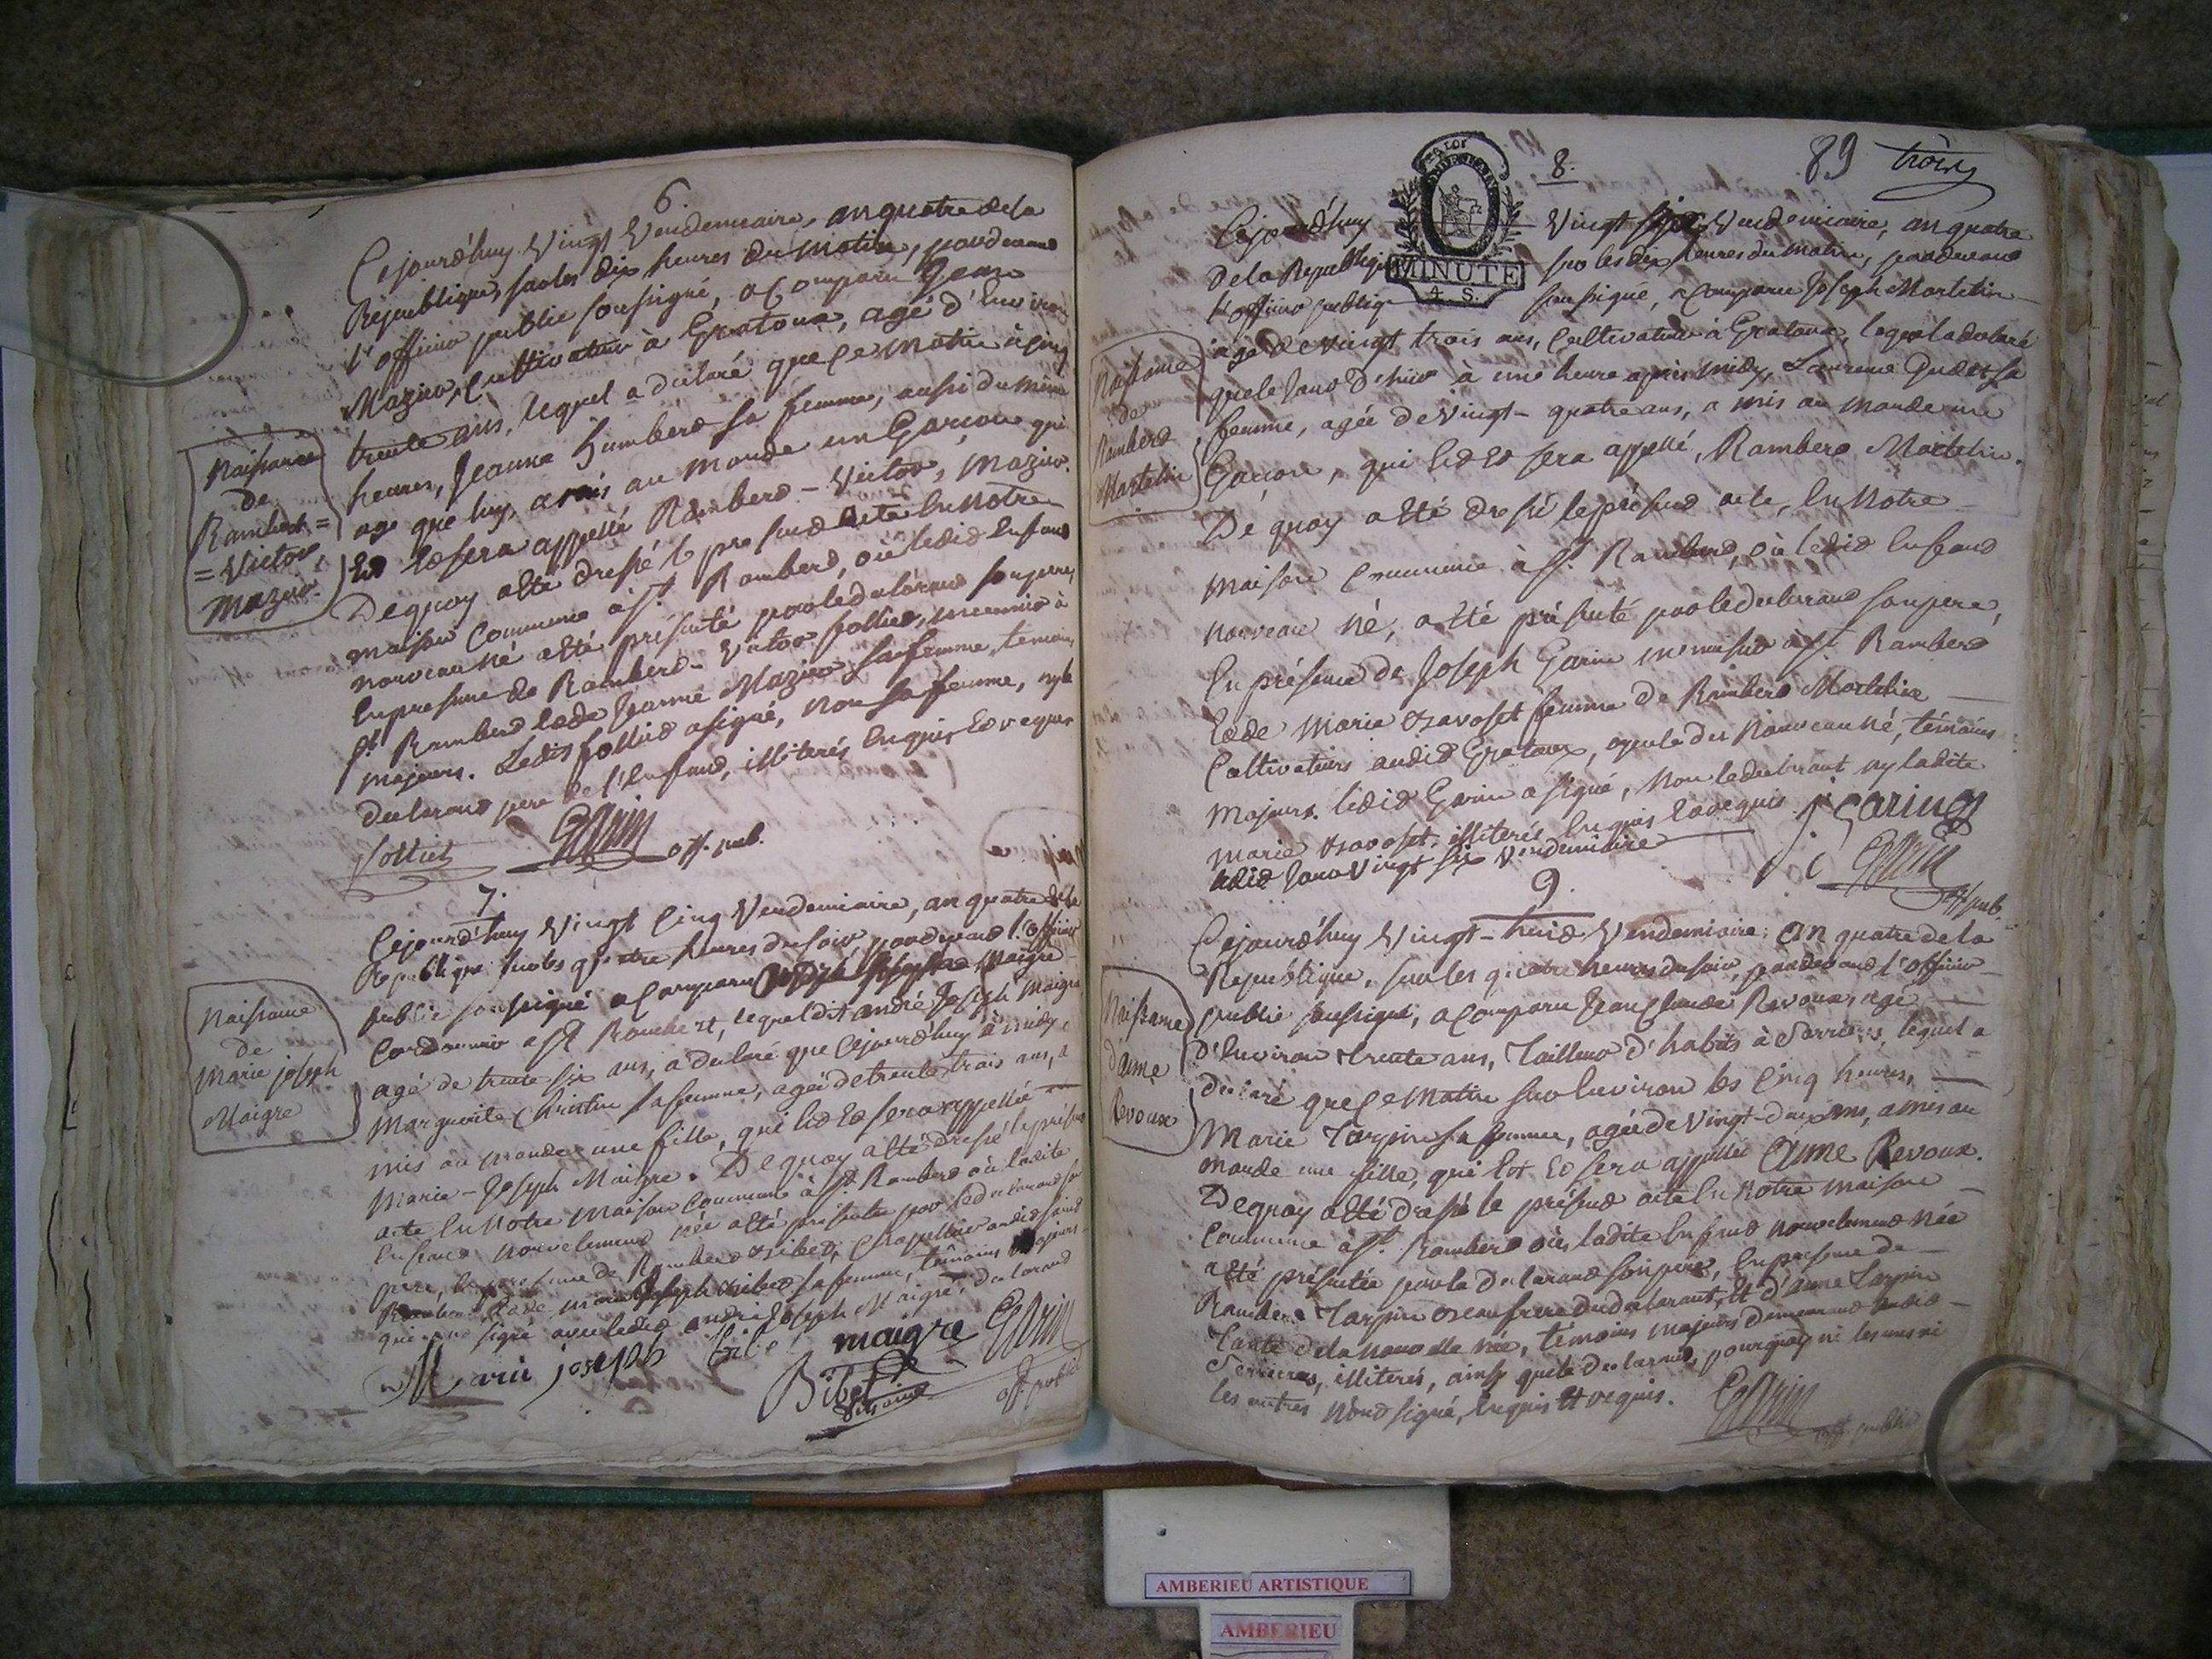 6.
Cejourd'huy Vingt Vendemiaire, an quatre de la
Republique, sur les dix heures du matin, pardevant
l'officier public soussigné, a Comparu Jean
Mazuir, Cultivateur à Grataux, agé d'Environ
trente ans, lequel a declaré que ce Matin à cinq
heures, Jeanne Humbert sa femme, aussi du même
age que luy, a mis au monde un Garçon qui
Est Et sera appellé Rambert-Victor, Mazuir.
De quoy a été dressé le present acte En Notre
maison Commune à St. Rambert, où ledit Enfant
nouveau né a été présenté par le declarant son pere,
En presence de Rambert-Victor folliet, menuisier à
St. Rambert Et de Jeanne Mazuir sa femme, temoins
majeurs. Ledit folliet a signé, Non sa femme, ny le
declarant pere de l'Enfant, illiterés Enquis Et requis
folliet Garin off. pub.
Naissance
de
Rambert =
= Victor,
Mazuir.
7.
Cejourd'huy Vingt Cinq Vendemiaire, an quatre de la
Republique sur les quatre heures du soir, pardevant l'officier
public soussigné a Comparu André Joseph Maigre
Cordonnier à St Rambert, lequel dit andré Joseph Maigre
agé de trente six ans, a declaré que Cejourd'huy à midy,
Marguerite Christin sa femme, agée de trente trois ans, a
mis au monde une fille, qui Est Et sera appellée
Marie-Joseph Maigre. De quoy a été dressé le présent
acte En Notre Maison Commune à St. Rambert où ladite
Enfant nouvellement née a été presentée par le declarant son
pere, En presence de Rambert Bibet, Chapellier audit saint
Rambert Et de marie Joseph Bibet sa femme, témoins Majeurs
qui ont signé avec ledit andré Joseph Maigre, declarant
Marie joseph maigre Garin
Bibet off. public
Naissance
de
Marie joseph
Maigre
8. 89 trois
LA LOI
MINUTE
4. S.
Cejourd'huy Vingt Vendemiaire, an quatre
De la Republique sur les dix heures du matin, pardevant
l'officier public soussigné, a Comparu Joseph Martelin
agé de Vingt trois ans, Cultivateur à Grataux, lequel a declaré
que le jour d'hier à une heure après midy, Laurence sa
femme, agée de Vingt-quatre ans, a mis au monde un
Garçon, qui Est Et sera appellé, Rambert Martelin.
De quoy a été dressé le présent acte, En Notre
Maison Commune à St. Rambert, où ledit Enfant
nouveau né, a été présenté par le declarant son pere,
En présence de Joseph Garin menuisier à St. Rambert
Et de Marie Travoset femme de Rambert Martelin
Cultivateurs audit Grataux, ayeule du Nouveau né, témoins
Majeurs. ledit Garin a signé, Non le declarant ny ladite
Marie Travoset, illiterés Enquis Et requis j Garin
ledit jour Vingt six Vendemiaire
Garin
off pub.
Naissance
de
Rambert
Martelin
9.
Cejourd'huy Vingt-huit Vendemiaire, An quatre de la
Republique, sur les quatre heures du soir, pardevant l'officier
public soussigné, a Comparu Jean Claude Revoux, agé
d'Environ trente ans, Tailleur d'habits à Serrieres, lequel a
declaré que ce Matin sur Environ les Cinq heures,
Marie Tarpin sa femme, agée de Vingt-deux ans, a mis au
monde une fille, qui Est Et sera appellée Anne Revoux.
De quoy a été dressé le présent acte En Notre Maison
Commune à St. Rambert où ladite Enfant nouvellement née
a été présentée par le declarant son pere, En presence de
Rambert Tarpin Beaufrere du declarant, Et d'anne Tarpin
Tante de la nouvelle née, témoins majeurs demeurant audit
Serrieres, illiterés, ainsy que le declarant, pourquoy ni les uns ni
les autres N'ont signé, Enquis Et requis. Garin
off. public
Naissance
d'anne
Revoux
AMBERIEU ARTISTIQUE
AMBERIEU